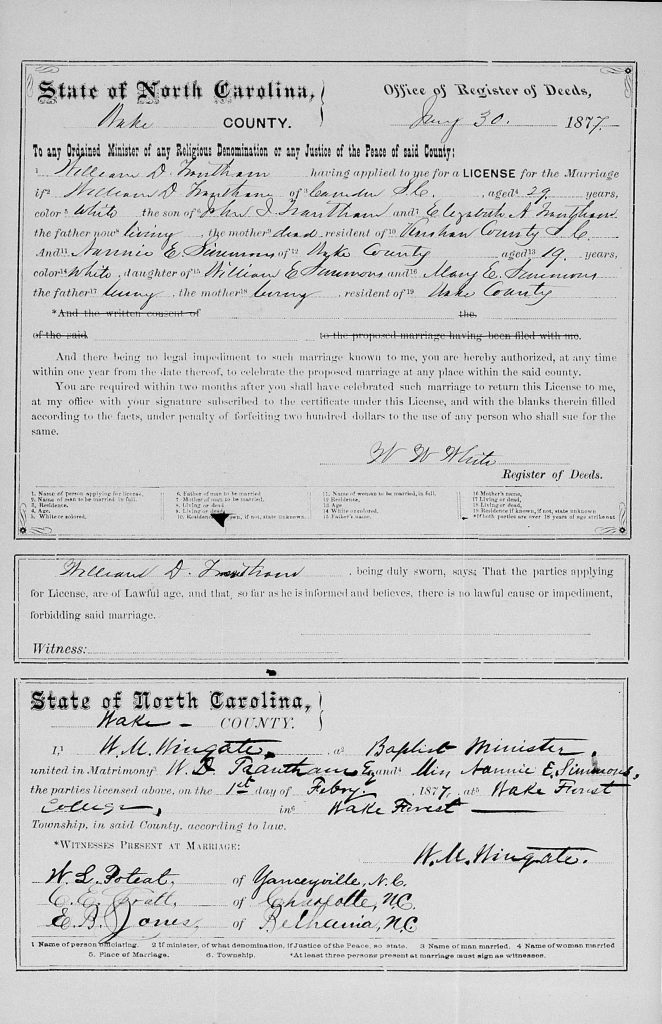 State of North Carolina,
Office of Register of Deeds,
Wake COUNTY.
Jany 30. 1877.
To any Ordained Minister of any Religious Denomination or any Justice of the Peace of said County:
1 William D. Trantham having applied to me for a LICENSE for the Marriage
of 2 William D Trantham of 3 Camden S.C. aged 4 29 years,
color 5 White, the son of 6 John J. Trantham and 7 Elizabeth A Trantham
the father now 8 living, the mother 9 dead resident of 10 Kershaw County S.C
And 11 Nannie E. Simmons of 12 Wake County aged 13 19. years,
color 14 White, daughter of 15 William E Simmons and 16 Mary E. Simmons
the father 17 living, the mother 18 living, resident of 19 Wake County
*And the written consent of the
of the said to the proposed marriage having been filed with me.
And there being no legal impediment to such marriage known to me, you are hereby authorized, at any time
within one year from the date thereof, to celebrate the proposed marriage at any place within the said county.
You are required within two months after you shall have celebrated such marriage to return this License to me,
at my office with your signature subscribed to the certificate under this License, and with the blanks therein filled
according to the facts, under penalty of forfeiting two hundred dollars to the use of any person who shall sue for the
same.
W W White
Register of Deeds.
1. Name of person applying for license.
2. Name of man to be married, in full.
3. Residence.
4. Age.
5. White or colored.
6. Father of man to be married
7. Mother of man to be married.
8. Living or dead
9. Living or dead.
10. Residence known, if not, state unknown.
11. Name of woman to be married, in full.
12 Residence,
13 Age
14 White or colored.
15 Father's name.
16 Mother's name,
17 Living or dead,
18 Living or dead,
19 Residence if known, if not, state unknown
*If both parties are over 18 years of age strike out
William D. Trantham, being duly sworn, says; That the parties applying
for License, are of Lawful age, and that, so far as he is informed and believes, there is no lawful cause or impediment,
forbidding said marriage.
Witness:
State of North Carolina,
Wake COUNTY.
I, 1 W. M. Wingate, a 2 Baptist Minister,
united in Matrimony 3 W. D. Trantham and 4 Miss Nannie E. Simmons,
the parties licensed above, on the 1st day of Feby. 1877, at 5 Wake Forest
College, in 6 Wake Forest
Township, in said County, according to law.
*WITNESSES PRESENT AT MARRIAGE:
W. M. Wingate.
W. L. Poteat, of Yanceyville, N.C.
of Charlotte, N.C.
E. B. Jones, of Bethania, N.C
1 Name of person officiating. 2 If minister, of what denomination, if Justice of the Peace, so state. 3 Name of man married. 4 Name of woman married
5. Place of Marriage. 6. Township. *At least three persons present at marriage must sign as witnesses.